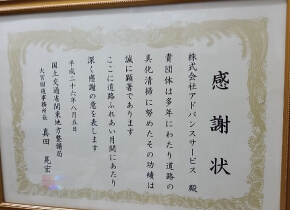 感謝状
株式会社アドバンスサービス 殿
貴団体は多年にわたり道路の
美化清掃に努めたその功績は
誠に顕著であります
ここに道路ふれあい月間にあたり
深く感謝の意を表します
平成二十六年八月五日
国土交通省関東地方整備局
大宮国道事務所長 真田 晃宏